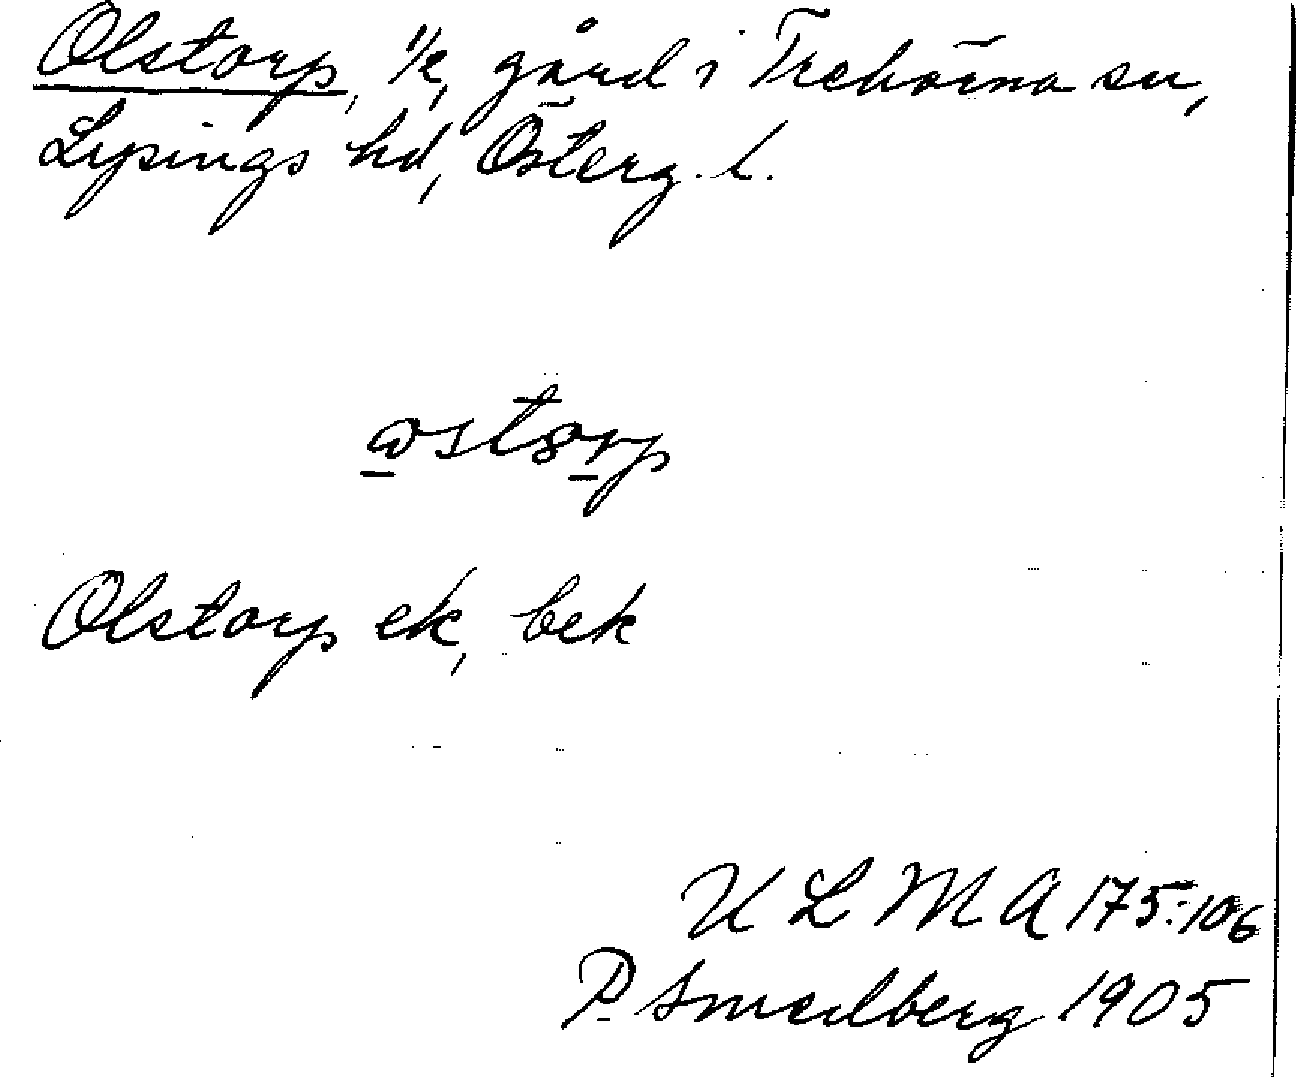 Olstorp, 1/2, gård i Trehörna sn,
Lysings hd, Österg. l.
ωstɵrp
Olstorp ek, bek
U L M A 175:106
P Smedberg 1905